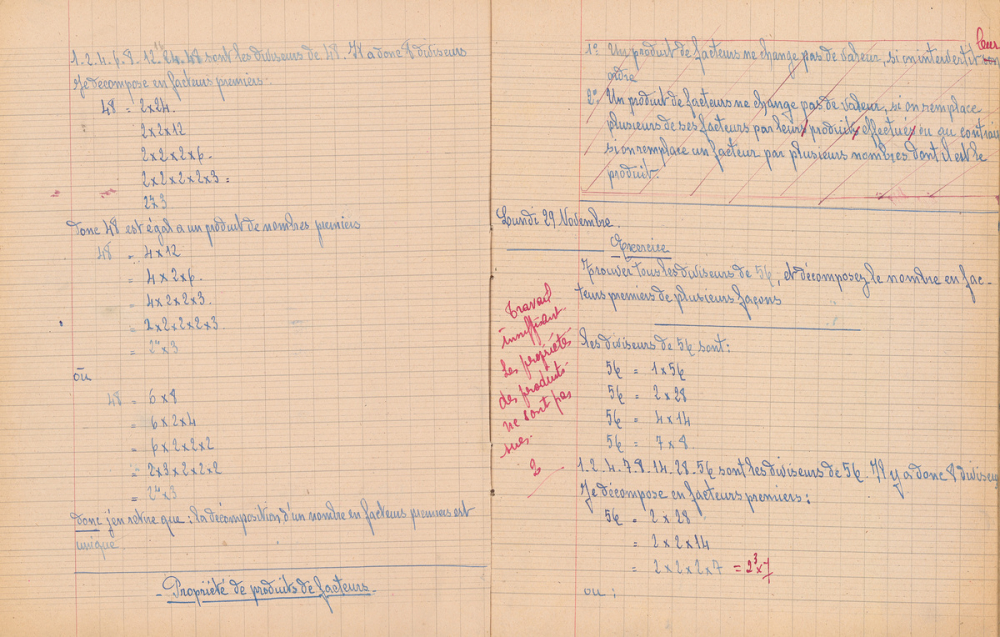 1.2.4.6.8.12.24.48 sont les diviseurs de 48. Il a donc 8 diviseurs
Je décompose en facteurs premiers.
48 = 2x24.
2x2x12
2x2x2x6.
2x2x2x2x3 =
2⁴x3
donc 48 est égal a un produit de nombres premiers
48 = 4x12
= 4x2x6.
= 4x2x2x3.
= 2x2x2x2x3.
= 2⁴x3
ou
48 = 6x8
= 6x2x4
= 6x2x2x2
= 2x3x2x2x2
= 2⁴x3
donc j'en retire que : la décomposition d'un nombre en facteurs premiers est
unique.
- Propriété de produits de facteurs -
1º Un produit de facteurs ne change pas de valeur, si on intervertit leur
ordre
2º Un produit de facteurs ne change pas de valeur, si on remplace
plusieurs de ses facteurs par leurs produits effectués ou au contraire
si on remplace un facteur par plusieurs nombres dont il est le
produit.
Lundi 29 Novembre.
Exercice
Trouver tous les diviseurs de 56, et décomposez le nombre en fac-
teurs premiers de plusieurs façons
Travail
insuffisant
Les propriétés
des produits
ne sont pas
sues.
2
les diviseurs de 56 sont :
56 = 1x56
56 = 2x28
56 = 4x14
56 = 7x8
1.2.4.7.8.14.28.56 sont les diviseurs de 56. Il y a donc 8 diviseurs
Je décompose en facteurs premiers :
56 = 2x28
= 2x2x14
= 2x2x2x7 = 2³x7
ou :